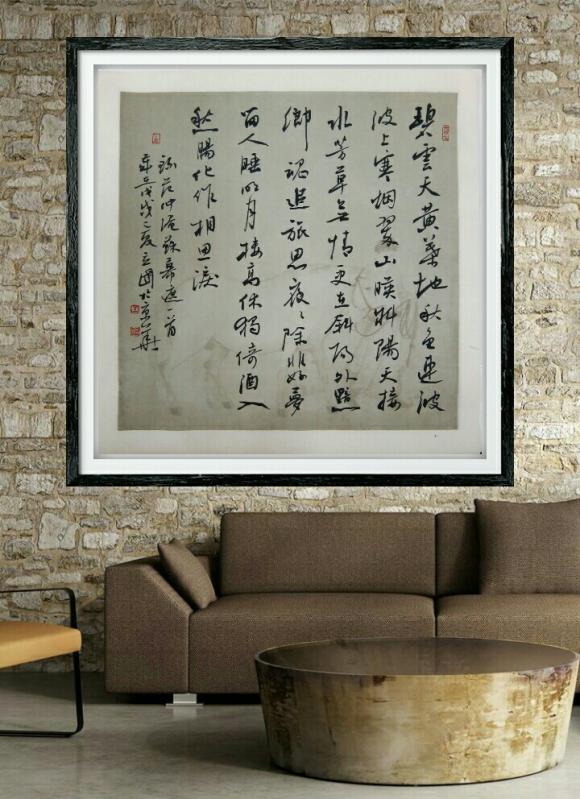 碧雲天黃葉地秋色連波
波上寒烟翠山映斜陽天接
水芳草无情更在斜陽外黯
鄉魂追旅思夜々除非好夢
留人睡明月樓高休獨倚酒入
愁腸化作相思淚
錄范仲淹蘇幕遮一首
歲在戊戌之夏立國於京華